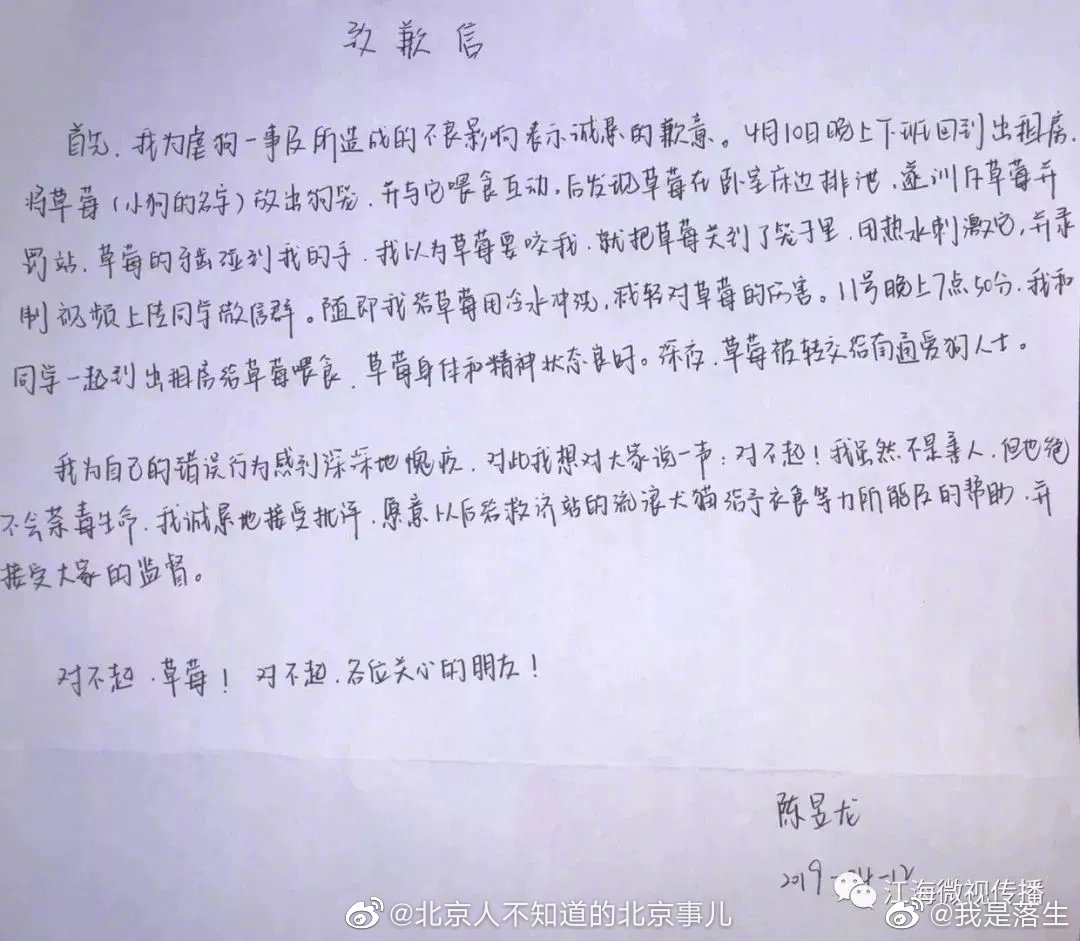 致歉信
首先,我为虐狗一事及所造成的不良影响表示诚恳的歉意。4月10日晚上下班回到出租房,
将草莓(小狗的名字)放出狗笼,并与它喂食互动,后发现草莓在卧室床边排泄,遂训斥草莓并
罚站,草莓的牙齿碰到我的手,我以为草莓要咬我,就把草莓关到了笼子里,用热水刺激它,并录
制视频上传同学微信群。随即我给草莓用冷水冲洗,减轻对草莓的伤害。11号晚上7点50分,我和
同学一起到出租房给草莓喂食,草莓身体和精神状态良好。深夜,草莓被转交给南通爱狗人士。
我为自己的错误行为感到深深地愧疚,对此我想对大家说一声:对不起!我虽然不是善人,但也绝
不会荼毒生命,我诚恳地接受批评,愿意以后给救济站的流浪犬猫给予衣食等力所能及的帮助,并
接受大家的监督。
对不起,草莓!对不起,各位关心的朋友!
陈昱龙
2019-04-12
江海微视传播
@北京人不知道的北京事儿
@我是落生